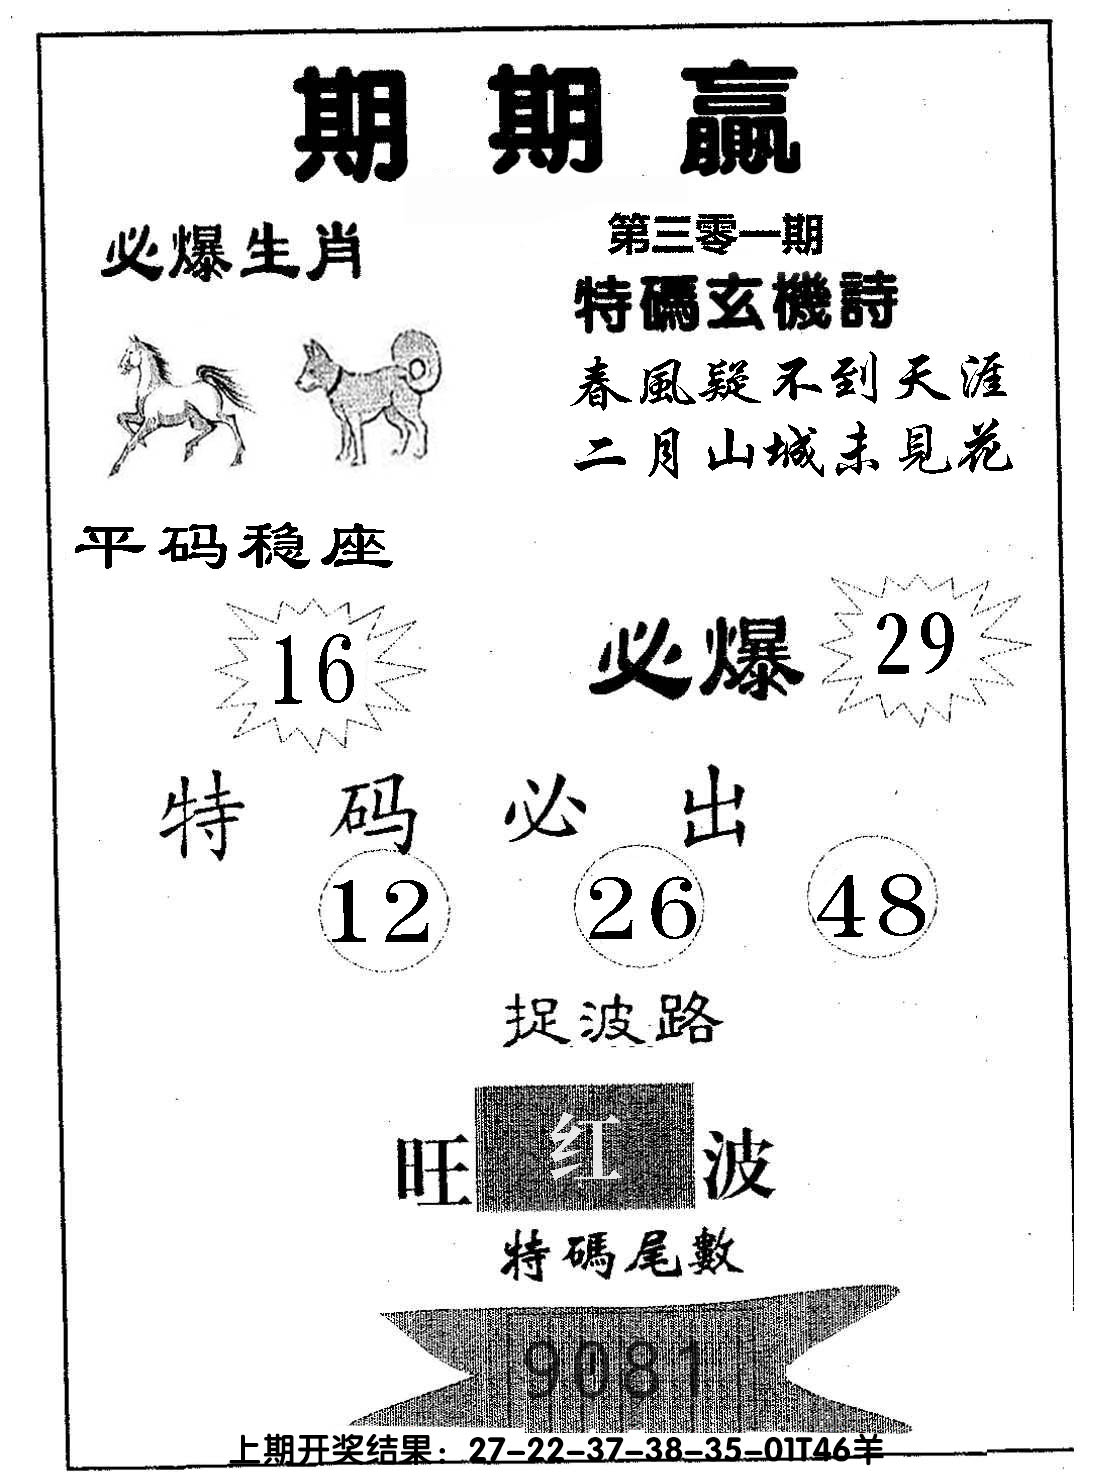 期期赢
必爆生肖
第三零一期
特碼玄機詩
春風疑不到天涯
二月山城未見花
平码稳座
16
必爆
29
特码必出
12 26 48
捉波路
旺红波
特碼尾數
9081
上期开奖结果：27-22-37-38-35-01T46羊